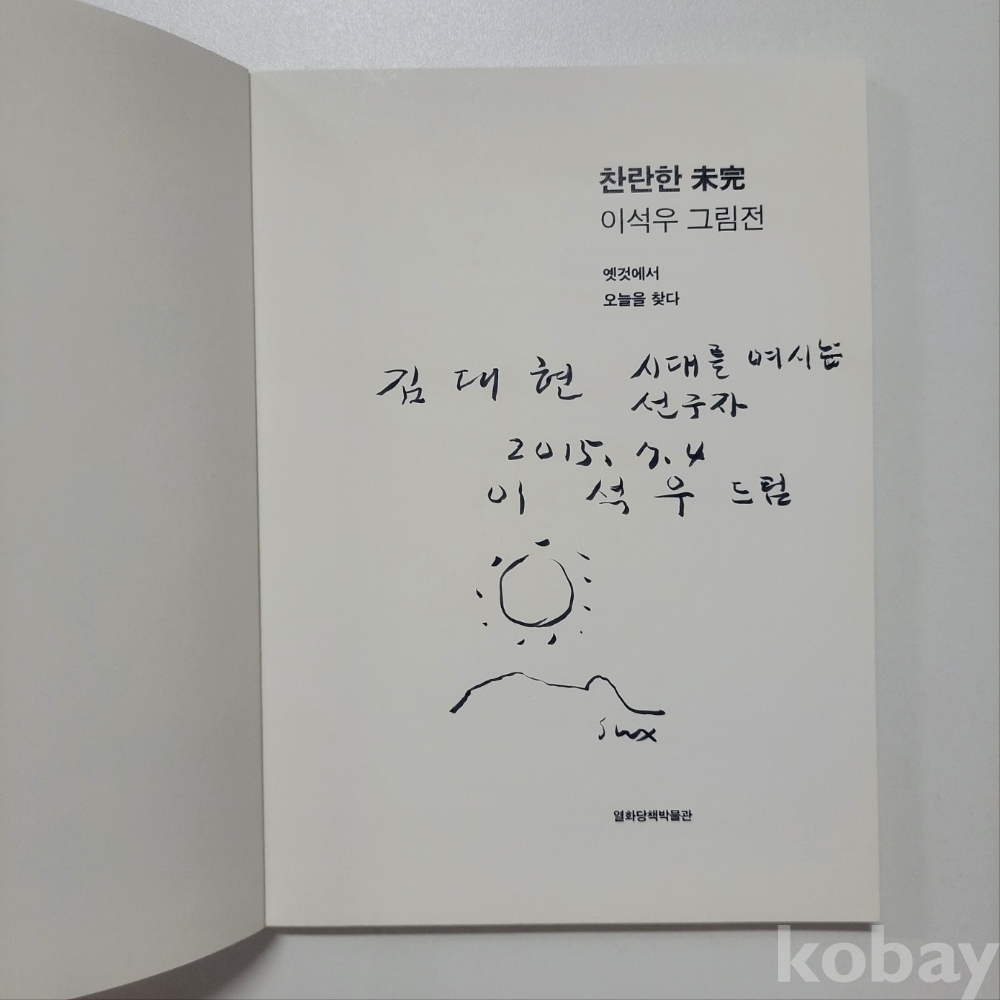 찬란한 未完
이석우 그림전
옛것에서
오늘을 찾다
김대현 시대를 여시는
선구자
2015. 7. 4
이석우 드림
열화당책박물관
kobay